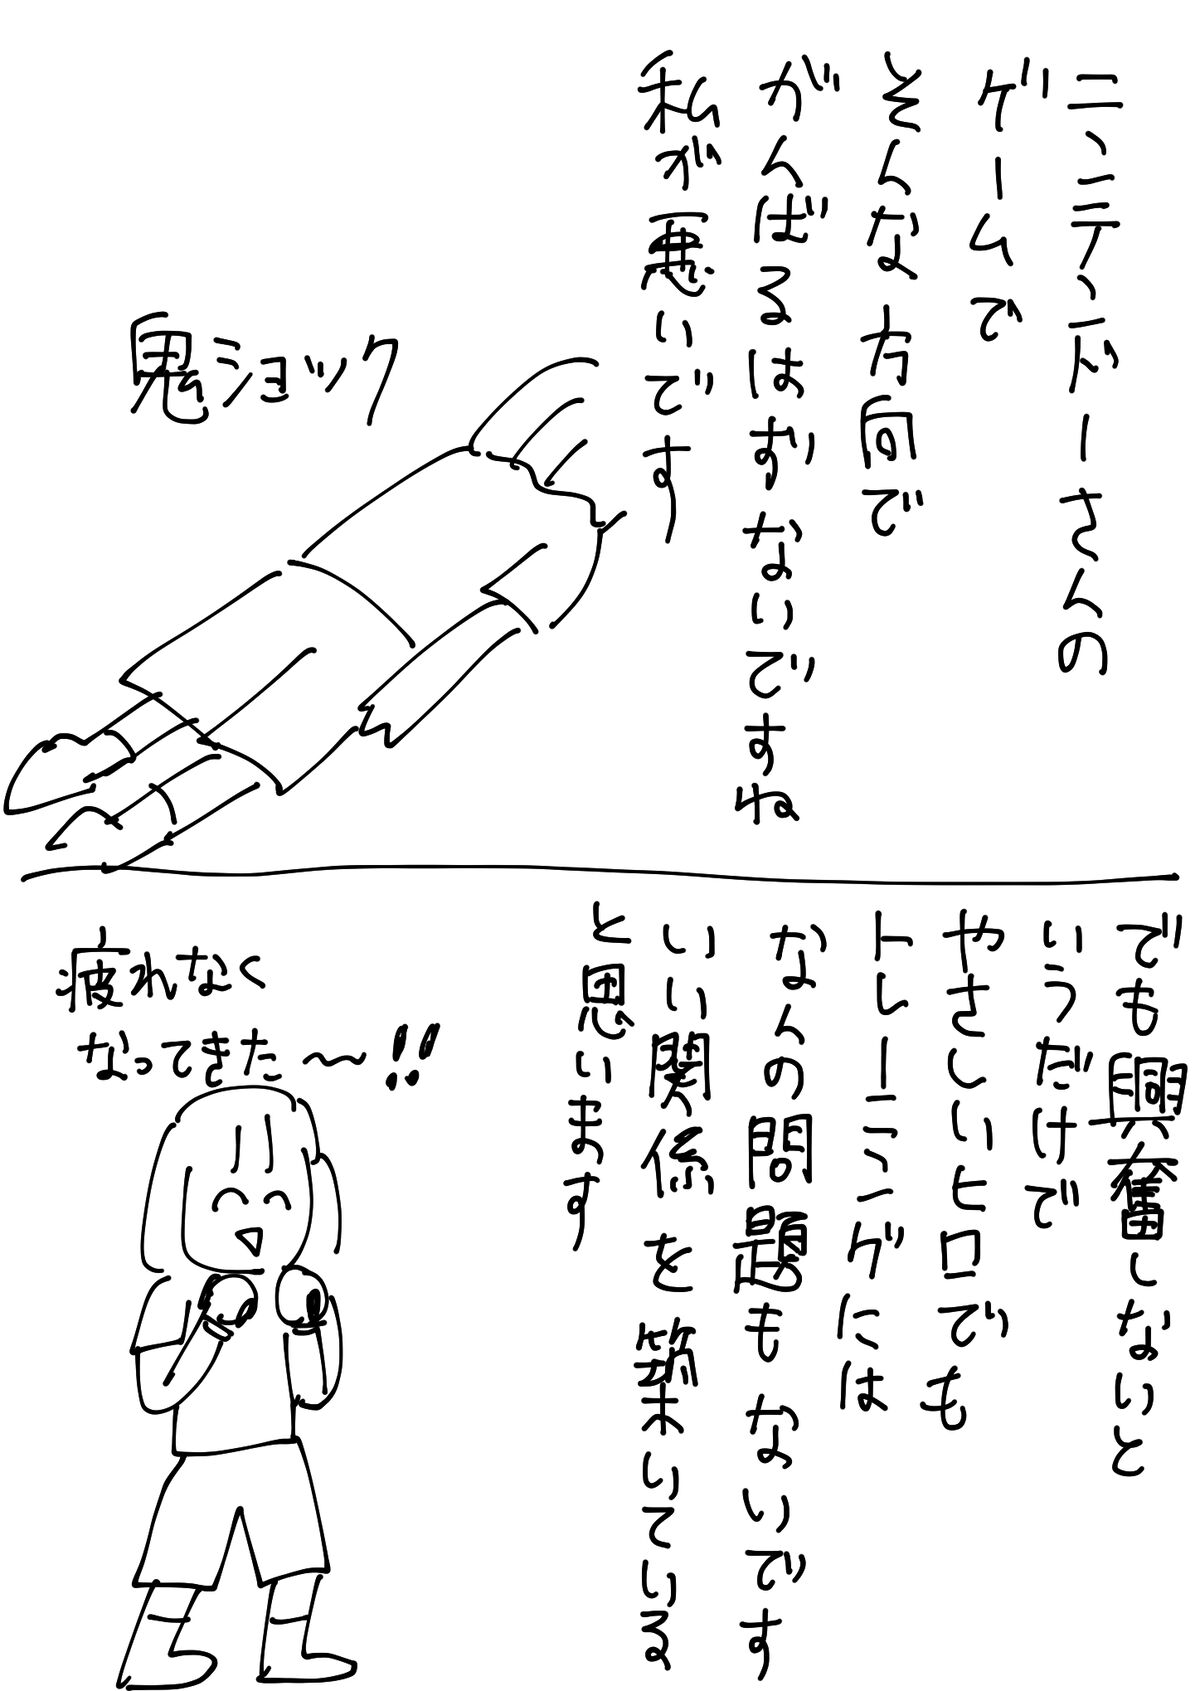 ニンテンドーさんの
ゲームで
そんな方向で
がんばるはずないですね
私が悪いです
鬼ショック
でも興奮しないと
いうだけで
やさしいヒロでも
トレーニングには
なんの問題もないです
いい関係を築いている
と思います
疲れなく
なってきた〜!!